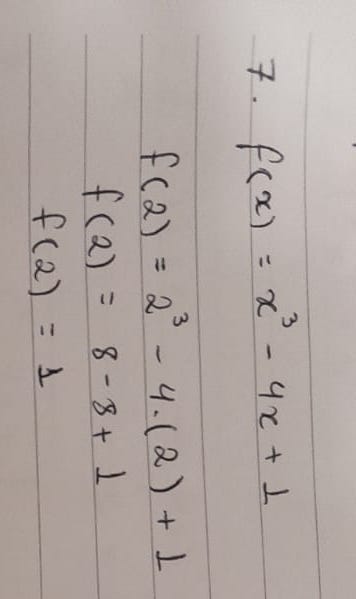 7. f(x) = x³ - 4x + 1
f(2) = 2³ - 4.(2) + 1
f(2) = 8 - 8 + 1
f(2) = 1